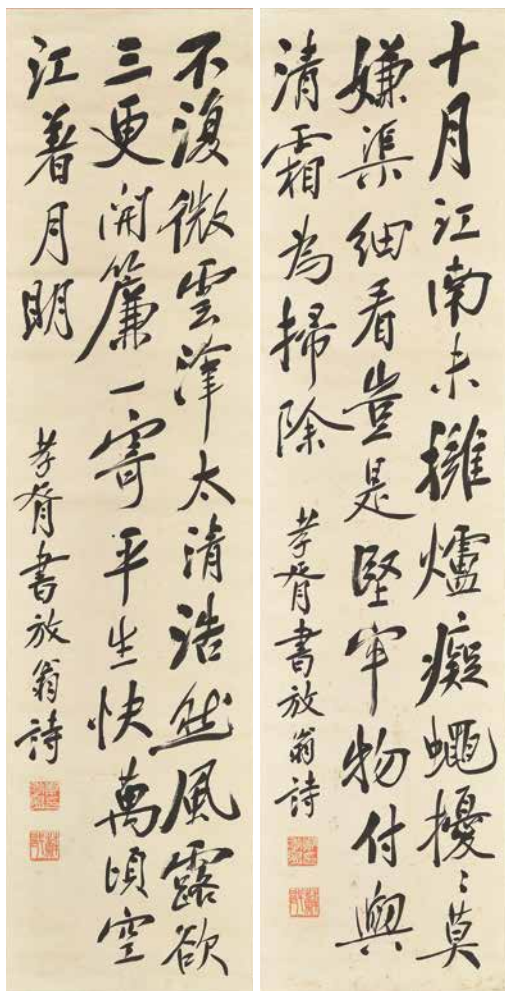 十月江南未擁爐癡蠅擾〻莫
嫌渠細看豈是堅牢物付與
清霜為掃除
孝胥書放翁詩
不復微雲滓太清浩然風露欲
三更開簾一寄平生快萬頃空
江著月明
孝胥書放翁詩